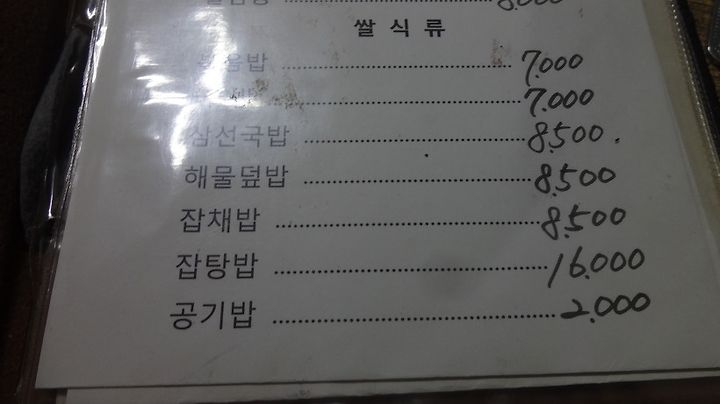 8.000
쌀 식 류
볶음밥 7.000
7.000
삼선국밥 8.500
해물덮밥 8.500
잡채밥 8.500
잡탕밥 16.000
공기밥 2.000